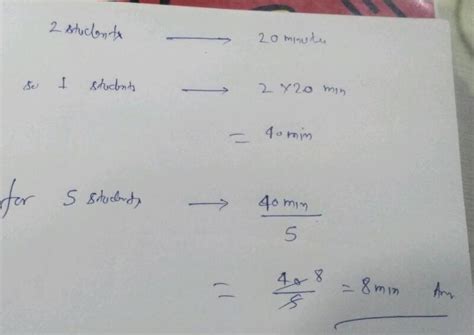 2 students → 20 minute
so 1 students → 2 × 20 min
= 40 min
for 5 students → 40 min / 5
= 40 8 / 5 = 8 min Ans